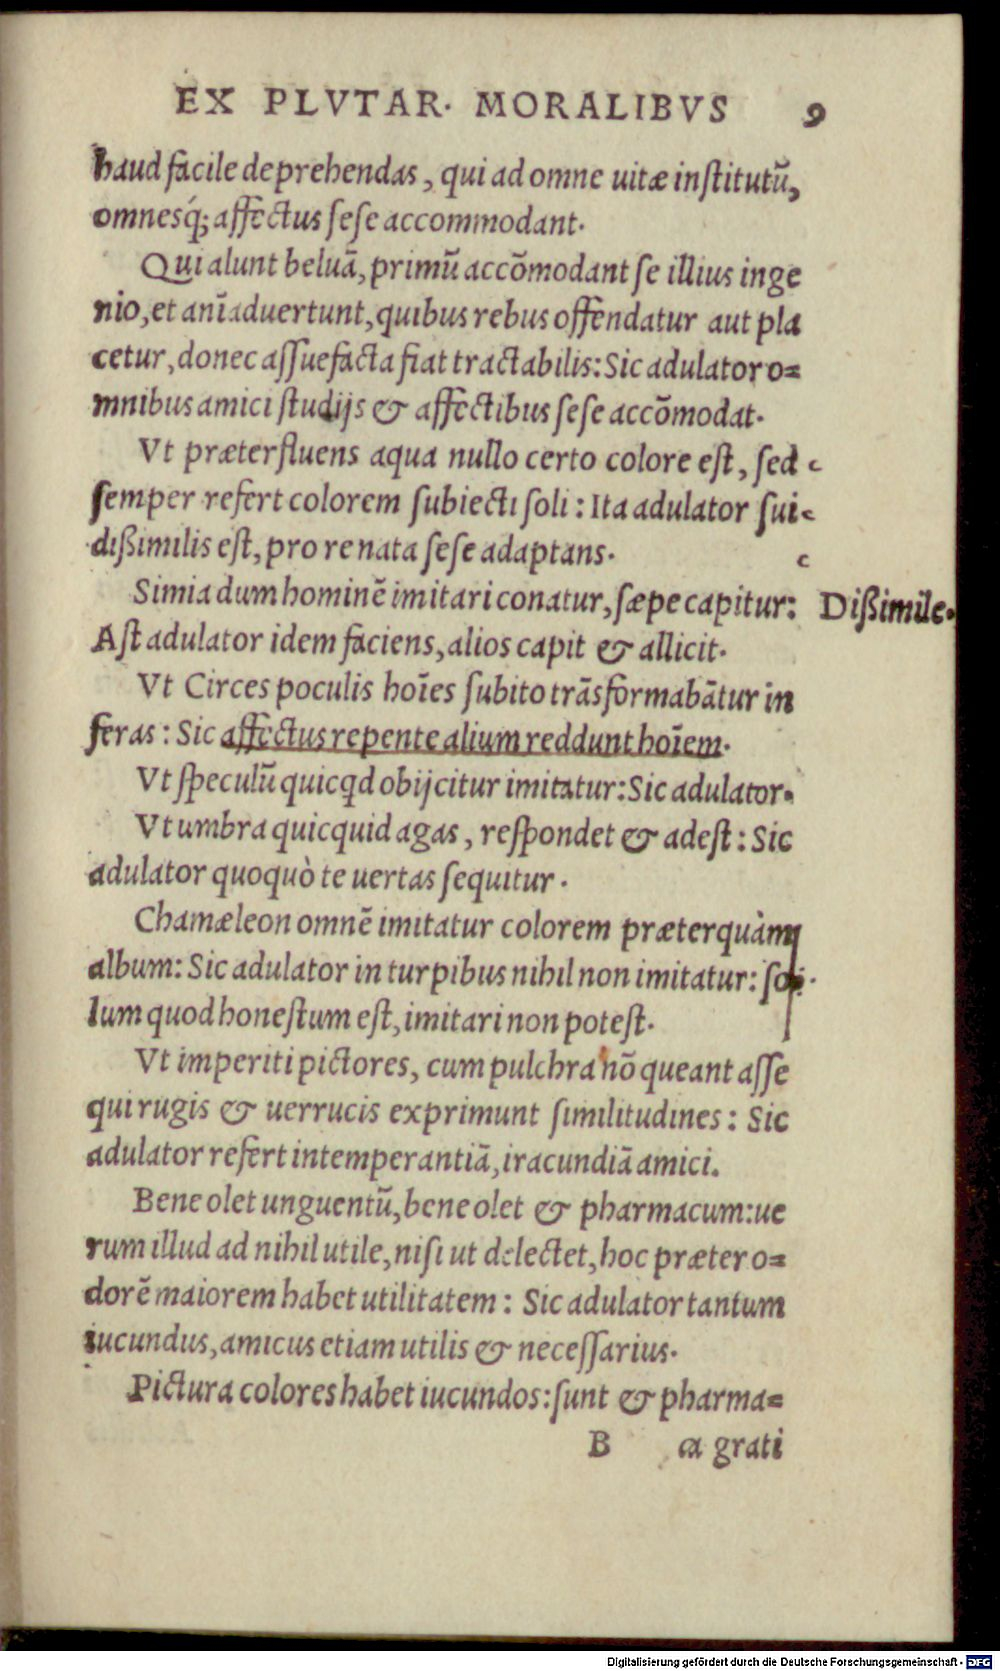 EX PLVTAR. MORALIBVS 9
haud facile deprehendas, qui ad omne uitæ inſtitutũ,
omnesq́; affectus ſeſe accommodant.
Qui alunt beluã, primũ accõmodant ſe illius inge
nio, et anĩaduertunt, quibus rebus offendatur aut pla
cetur, donec aſſuefacta fiat tractabilis: Sic adulator o=
mnibus amici ſtudijs & affectibus ſeſe accõmodat.
Vt præterfluens aqua nullo certo colore eſt, ſed
ſemper refert colorem ſubiecti ſoli: Ita adulator ſui
dißimilis eſt, pro re nata ſeſe adaptans.
Simia dum hominẽ imitari conatur, ſæpe capitur: Dißimile.
Aſt adulator idem faciens, alios capit & allicit.
Vt Circes poculis hoĩes ſubito trãsformabãtur in
feras: Sic affectus repente alium reddunt hoĩem.
Vt ſpeculũ quicqd obijcitur imitatur: Sic adulator.
Vt umbra quicquid agas, reſpondet & adeſt: Sic
adulator quoquò te uertas ſequitur.
Chamæleon omnẽ imitatur colorem præterquàm
album: Sic adulator in turpibus nihil non imitatur: ſo
lum quod honeſtum eſt, imitari non poteſt.
Vt imperiti pictores, cum pulchra nõ queant aſſe
qui rugis & uerrucis exprimunt ſimilitudines: Sic
adulator refert intemperantiã, iracundiã amici.
Bene olet unguentũ, bene olet & pharmacum: ue
rum illud ad nihil utile, niſi ut delectet, hoc præter o=
dorẽ maiorem habet utilitatem: Sic adulator tantum
iucundus, amicus etiam utilis & neceſſarius.
Pictura colores habet iucundos: ſunt & pharma=
B ca grati
Digitalisierung gefördert durch die Deutsche Forschungsgemeinschaft - DFG